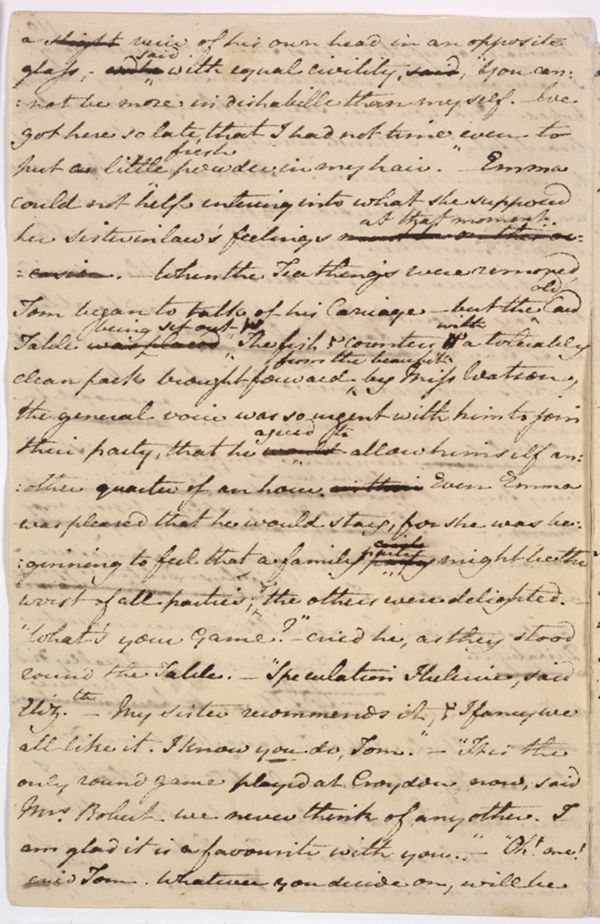 a slight veiw of his own head in an opposite
said
glass, - with equal civility, said, "You can:
:not be more in dishabille than myself. - We
got here so late, that I had not time even to
fresh
put a little powder in my hair." - Emma
could not help entering into what she supposed
at that moment.
her Sisterinlaw's feelings
:casion. - When the Teathings were removed,
old
Tom began to talk of his Carriage - but the Card
being set out, & with
Table was placed The fish & counters & a tolerably
from the beaufit
clean pack brought forward by Miss Watson,
the general voice was so urgent with him to join
agreed to
their party, that he would allow himself an:
:other quarter of an hour. Even Emma
was pleased that he would stay, for she was be:
:ginning to feel that a family
party
party might be the
worst of all parties; the others were delighted. -
"What's your Game?" - cried he, as they stood
round the Table. - "Speculation I beleive, said
Eliz.th - My Sister recommends it, & I fancy we
all like it. I know you do, Tom." - "It is the
only round game played at Croydon now, said
Mrs. Robert - we never think of any other. I
am glad it is a favourite with you." - "Oh! me!
cried Tom. Whatever you decide on, will be